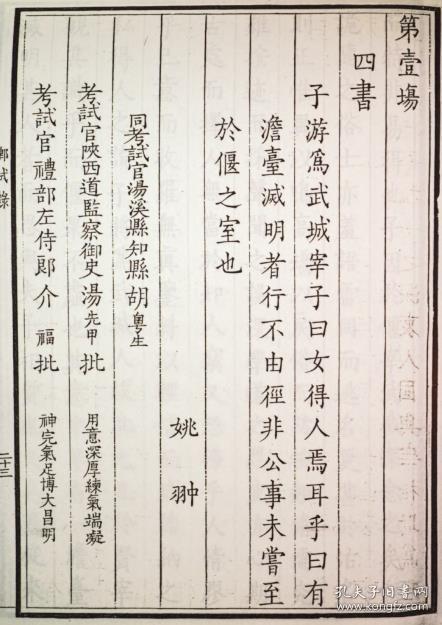 第壹場
四書
子游爲武城宰子曰女得人焉耳乎曰有
澹臺滅明者行不由徑非公事未嘗至
於偃之室也
姚翀
同考試官湯溪縣知縣胡粵生
考試官陝西道監察御史湯先甲批 用意深厚練氣端凝
考試官禮部左侍郎介福批 神完氣足博大昌明
鄉試錄
二十三
孔夫子旧书网
www.kongfz.com